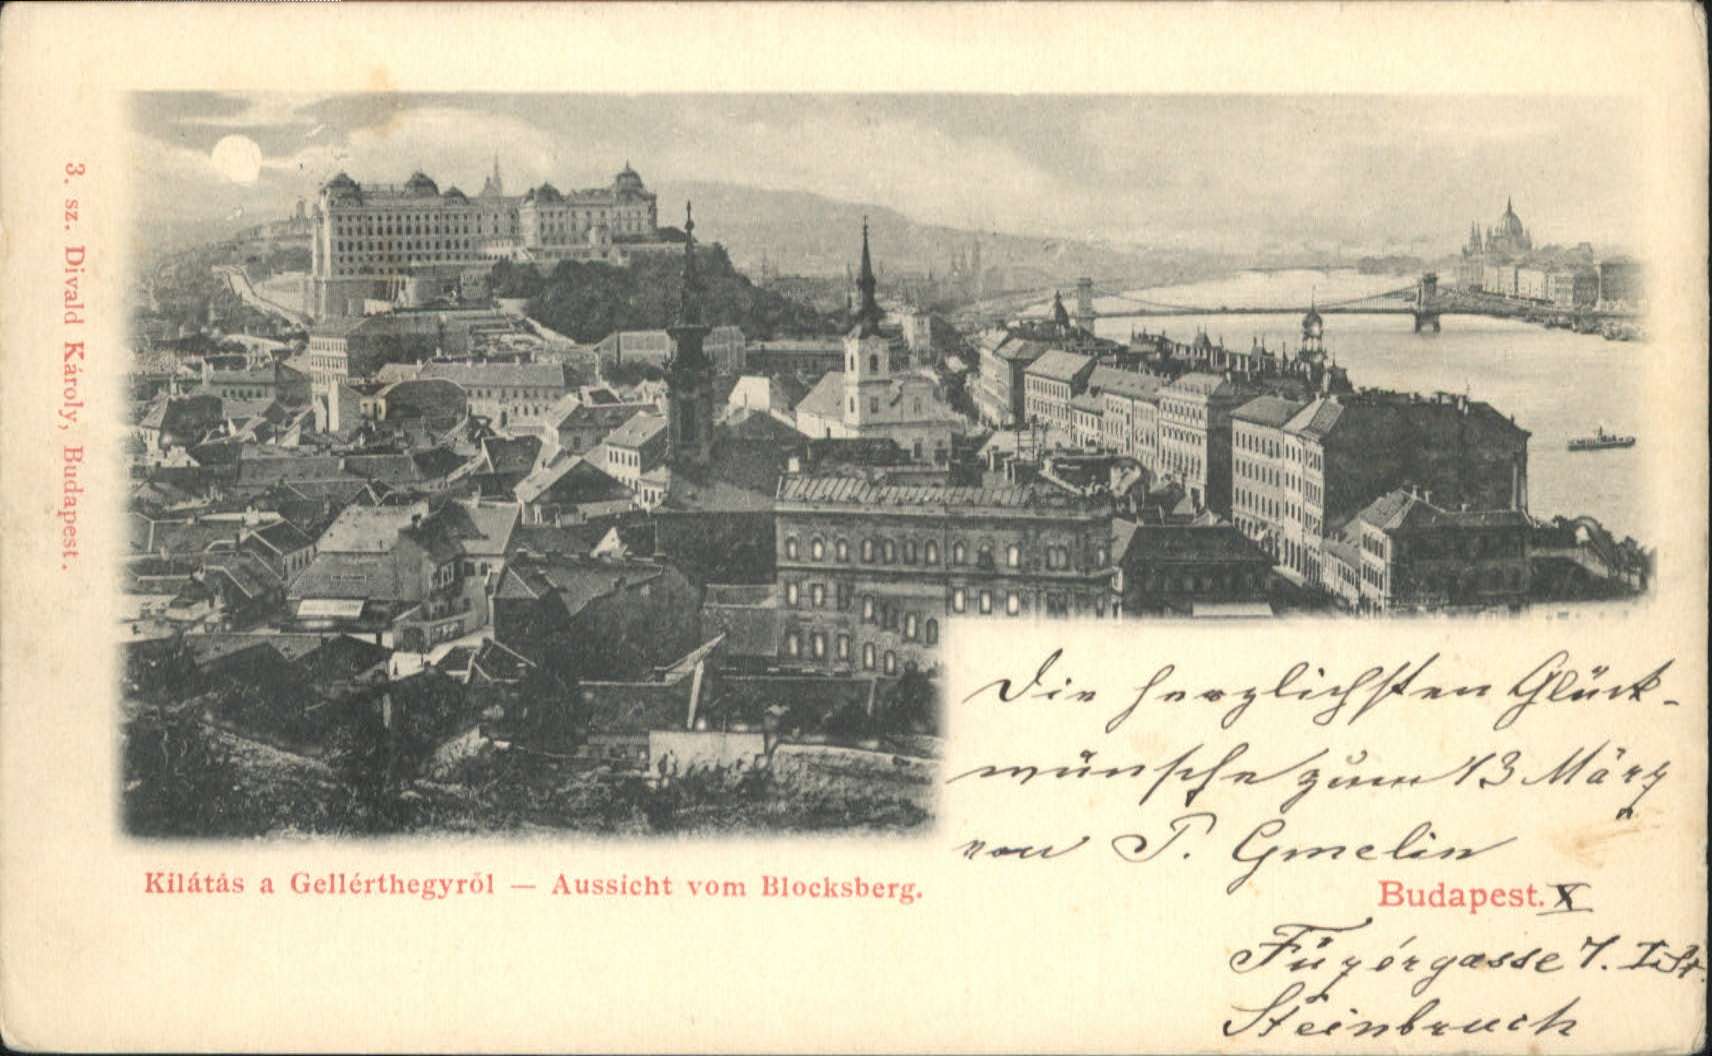 3. sz. Divald Károly, Budapest.
Die herzlichsten Glück-
wünsche zum 13 März
von P. Gmelin
Kilátás a Gellérthegyről — Aussicht vom Blocksberg.
Budapest. X
Füzérgasse 7. I. St.
Steinbruch